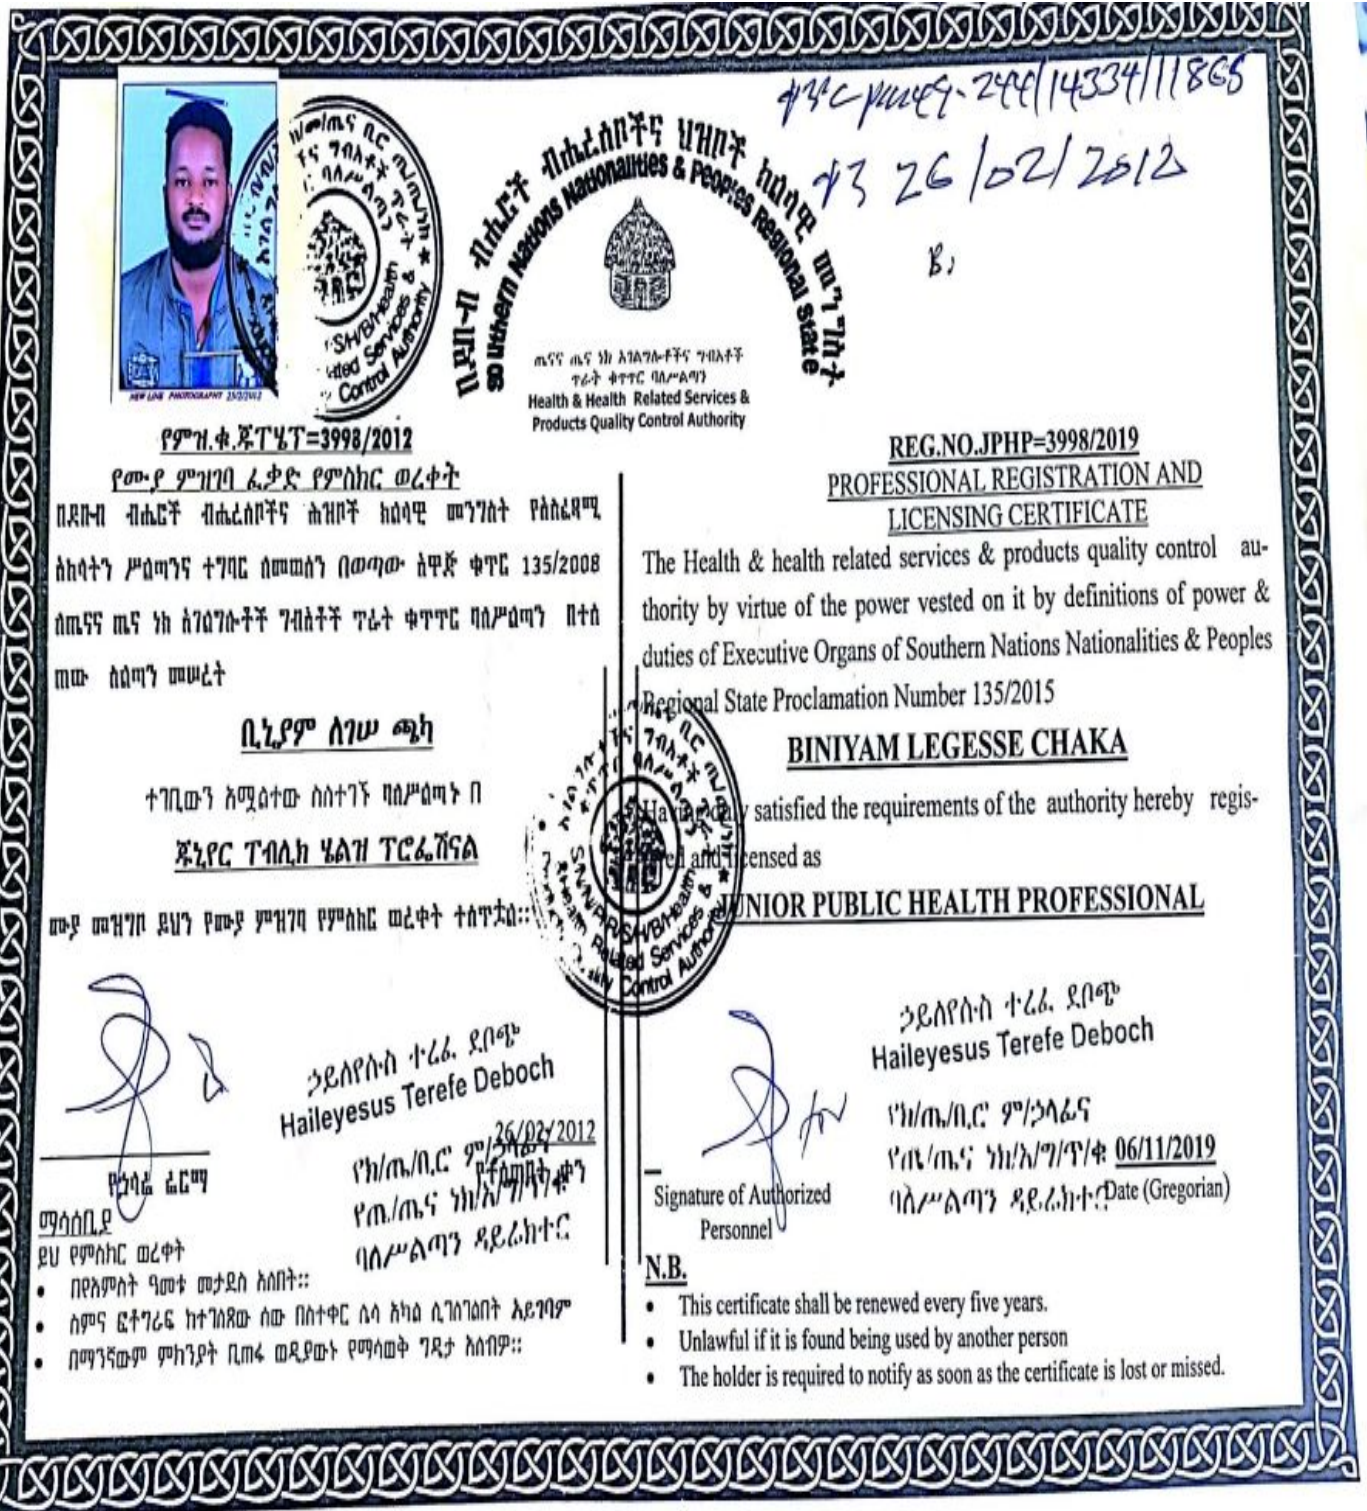 244/14334/11865
ቀን 26/02/2012
ደቡብ ብሔሮች ብሔረሰቦችና ህዝቦች ክልላዊ መንግስት
Southern Nations Nationalities & Peoples Regional State
ጤናና ጤና ነክ አገልግሎቶችና ግብአቶች
ጥራት ቁጥጥር ባለሥልጣን
Health & Health Related Services &
Products Quality Control Authority
NEW LINE PHOTOGRAPHY 25/2/2012
የምዝ.ቁ.ጁፐሄፕ=3998/2012
የሙያ ምዝገባ ፈቃድ የምስክር ወረቀት
በደቡብ ብሔሮች ብሔረሰቦችና ሕዝቦች ክልላዊ መንግስት የአስፈጻሚ
አካላትን ሥልጣንና ተግባር ለመወሰን በወጣው አዋጅ ቁጥር 135/2008
ለጤናና ጤና ነክ አገልግሎቶች ግብአቶች ጥራት ቁጥጥር ባለሥልጣን በተሰ
ጠው ስልጣን መሠረት
ቢኒያም ለገሠ ጫካ
ተገቢውን አሟልተው ስለተገኙ ባለሥልጣኑ በ
ጁኒየር ፐብሊክ ሄልዝ ፕሮፌሽናል
ሙያ መዝግቦ ይህን የሙያ ምዝገባ የምስክር ወረቀት ተሰጥቷል፡፡
ኃይለየሱስ ተረፈ ደቦጭ
Haileyesus Terefe Deboch
26/02/2012
የክ/ጤ/ቢሮ ም/ኃላፊና
የተሰጠበት ቀን
የጤ/ጤና ነክ/አ/ግ/ጥ/ቁ
ባለሥልጣን ዳይሬክተር
የኃላፊ ፊርማ
ማሳሰቢያ
ይህ የምስክር ወረቀት
• በየአምስት ዓመቱ መታደስ አለበት፡፡
• ስምና ፎቶግራፍ ከተገለጸው ሰው በስተቀር ሌላ አካል ሊገለገልበት አይገባም
• በማንኛውም ምክንያት ቢጠፋ ወዲያውኑ የማሳወቅ ግዴታ አለብዎ፡፡
REG.NO.JPHP=3998/2019
PROFESSIONAL REGISTRATION AND
LICENSING CERTIFICATE
The Health & health related services & products quality control au-
thority by virtue of the power vested on it by definitions of power &
duties of Executive Organs of Southern Nations Nationalities & Peoples
Regional State Proclamation Number 135/2015
BINIYAM LEGESSE CHAKA
Having duly satisfied the requirements of the authority hereby regis-
tered and licensed as
JUNIOR PUBLIC HEALTH PROFESSIONAL
ኃይለየሱስ ተረፈ ደቦጭ
Haileyesus Terefe Deboch
የክ/ጤ/ቢሮ ም/ኃላፊና
የጤ/ጤና ነክ/አ/ግ/ጥ/ቁ 06/11/2019
ባለሥልጣን ዳይሬክተር Date (Gregorian)
Signature of Authorized
Personnel
N.B.
• This certificate shall be renewed every five years.
• Unlawful if it is found being used by another person
• The holder is required to notify as soon as the certificate is lost or missed.
S/N/N/P/R/S/H/B/Health
& Health Related Services &
Control Authority